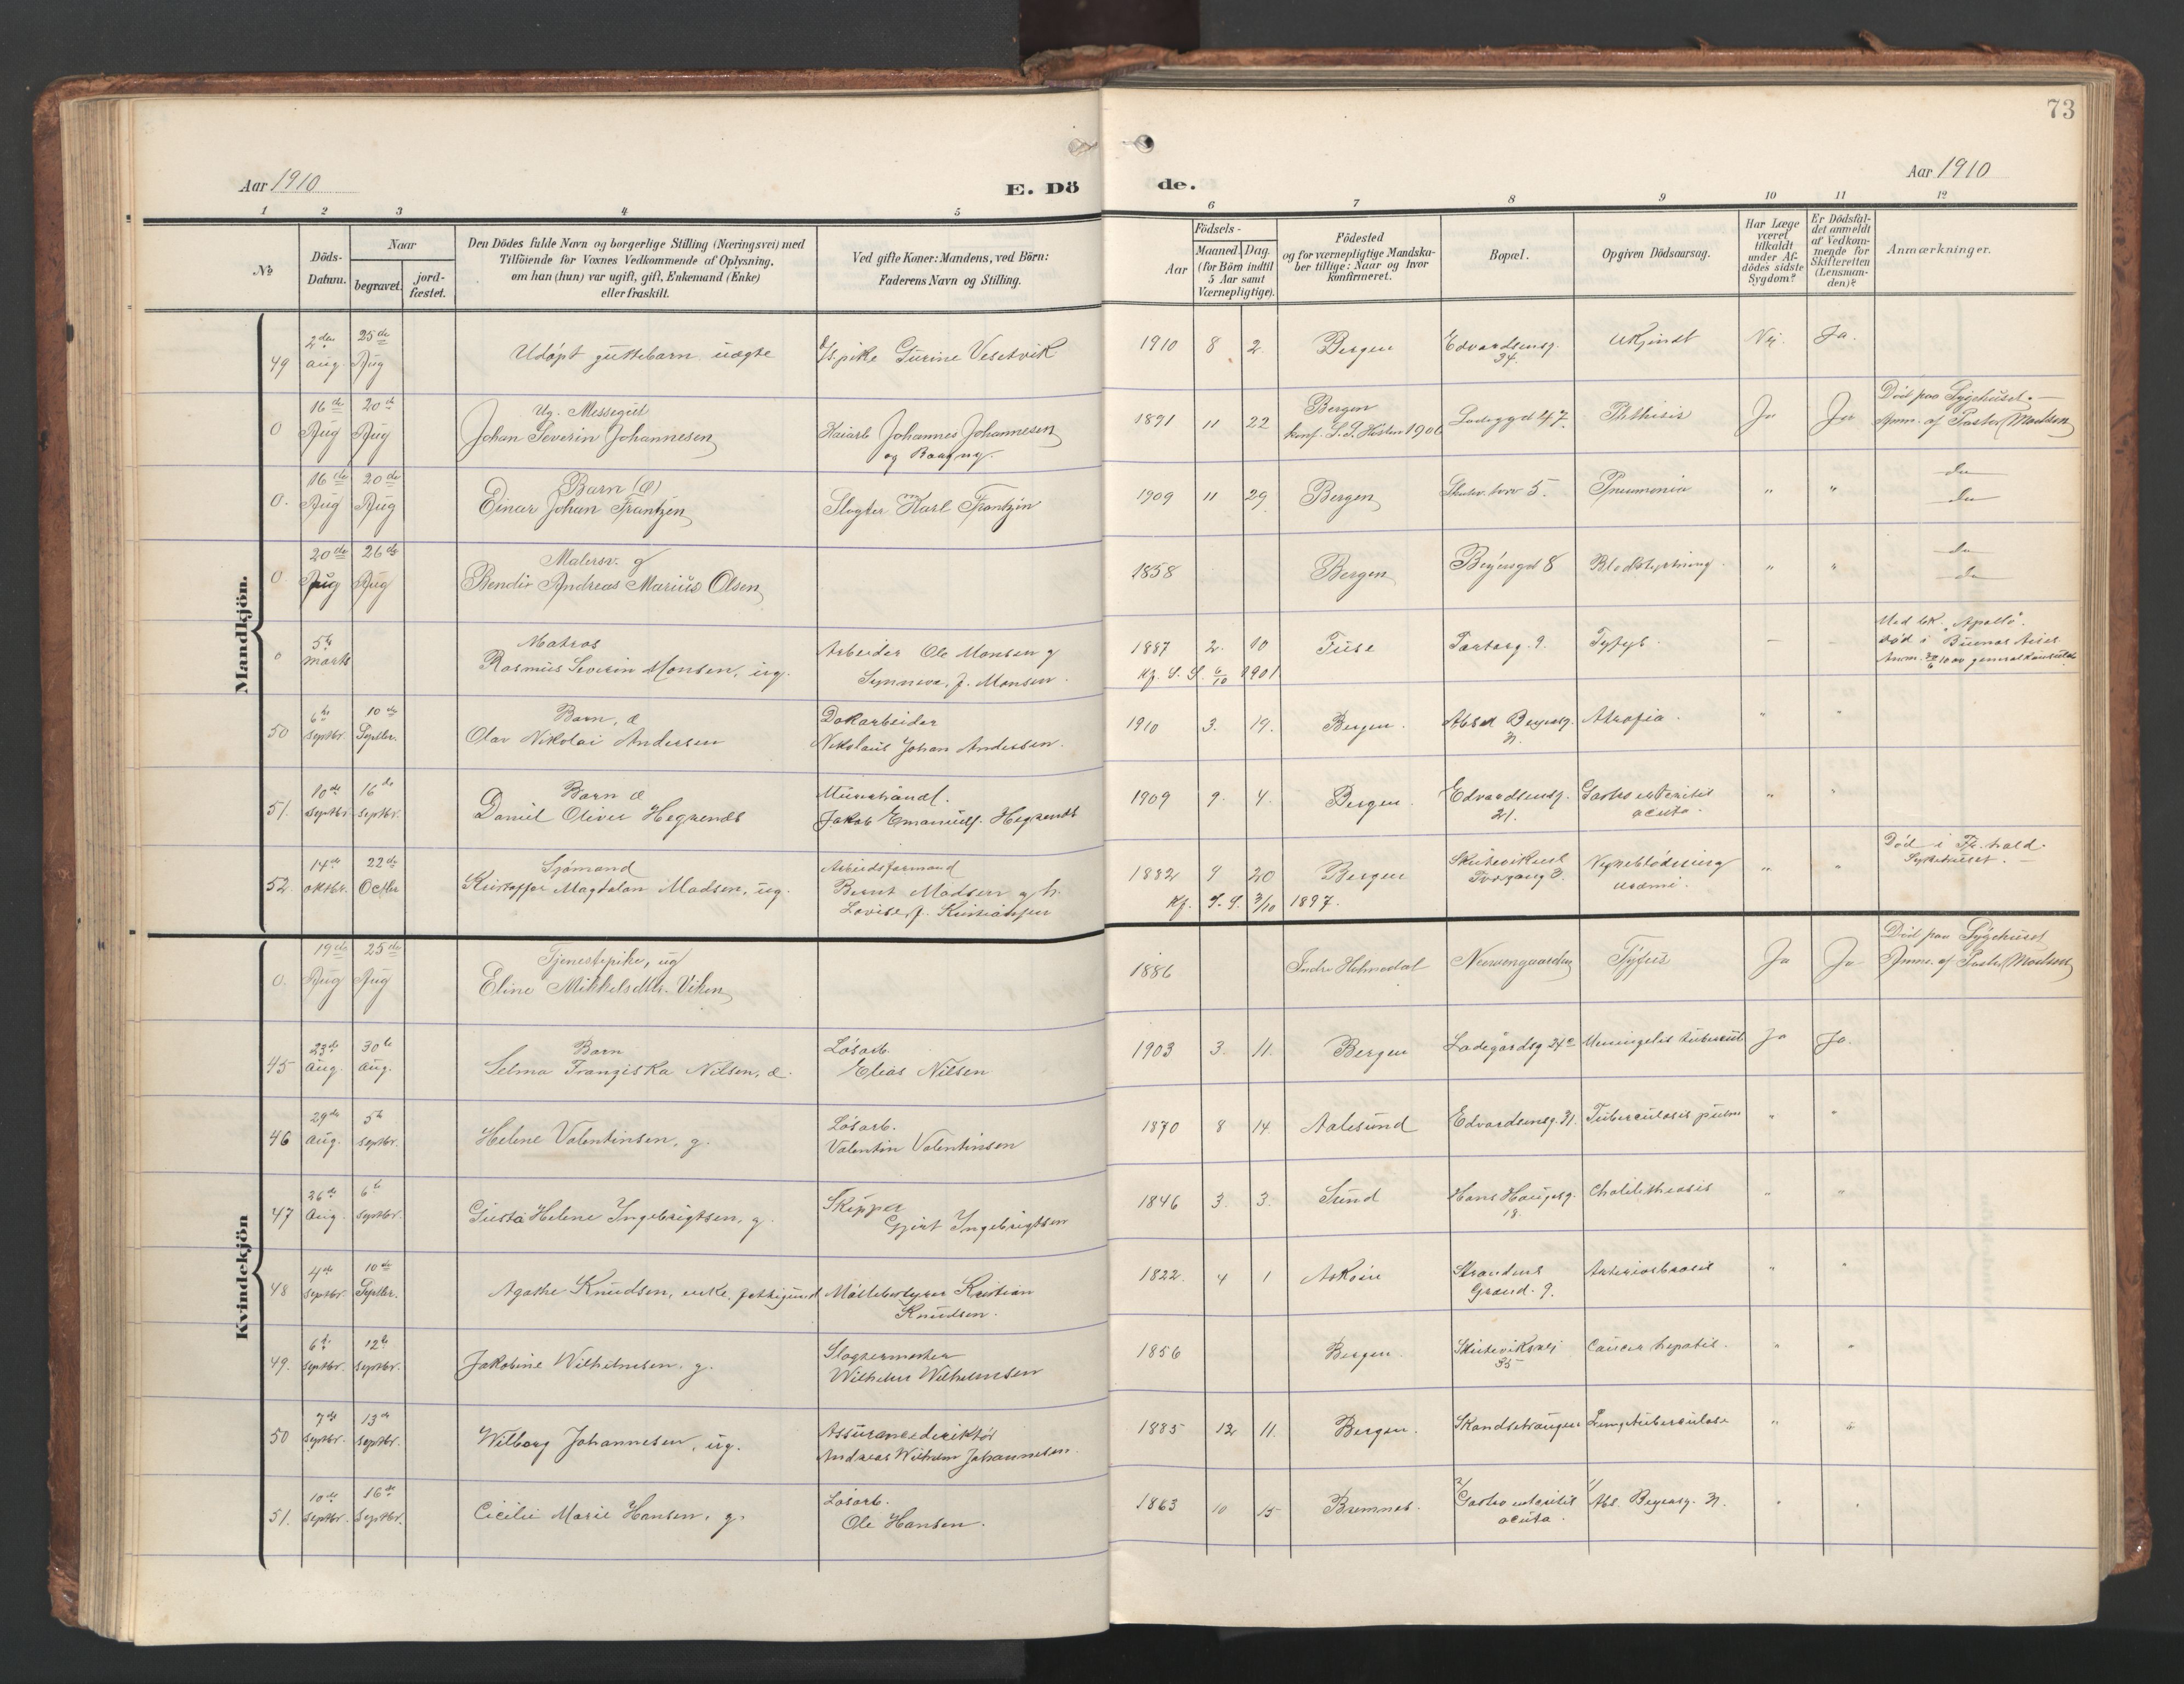 73
Aar 1910
E. Dö
de.
Aar 1910
1 2 3 4 5 6 7 8 9 10 11 12
No
Döds-
Datum.
Naar
begravet.
jord-
fæstet.
Den Dödes fulde Navn og borgerlige Stilling (Næringsvei) med
Tilföiende for Voxnes Vedkommende af Oplysning,
om han (hun) var ugift, gift, Enkemand (Enke)
eller fraskilt.
Ved gifte Koner: Mandens, ved Börn:
Faderens Navn og Stilling.
Födsels-
Aar
Maaned.
Dag.
(for Börn indtil
5 Aar samt
Værnepligtige).
Födested
og for værnepligtige Mandska-
ber tillige: Naar og hvor
konfirmeret.
Bopæl.
Opgiven Dödsaarsag.
Har Læge
været
tilkaldt
under Af-
dödes sidste
Sygdom?
Er Dödsfal-
det anmeldt
af Vedkom-
mende for
Skifteretten
(Lensman-
den)?
Anmærkninger.
Mandkjön.
49 2den Aug. 25de Aug Udöpt guttebarn uægte Ispike Gurine Vesetvik 1910 8 2. Bergen Edvardsensg. 34. Ukjendt Nei. Ja.
0 16de Aug 20de Aug Ug. Messegut
Johan Severin Johannesen Kaiarb Johannes Johannesen
og Ragny. 1891 11 22 Bergen
konf. Hösten 1906 Ladeggd 47. Phthisis Ja Ja Död paa Sygehuset. —
Anm. af Pastor Madsen
0. 16de Aug 20de Aug Barn (Æ)
Einar Johan Frantzen Slagter Karl Frantzen 1909 11 29 Bergen 5. Pneumonia " " do
do
0 20de Aug 26de Aug Malersv. g
Bendix Andreas Marius Olsen 1858 Bergen Beyersgd 8 Blodstyrtning. " " do
do
0 5te Marts Matros
Rasmus Severin Monsen, ug. Arbeider Ole Monsen g
Synneve, f. Monsen. 1887 2. 10 Fuse 9. Tyfus. — — Med bk. "Apollo".
död i Buenos Aires
Kf. S. S. 6/10 1901.
50 6te Septbr. 10de Septbr. Barn, æ
Olav Nikolai Andersen Dokarbeider
Nikolaus Johan Andersen. 1910 3. 19. Bergen. Absal. Beyersg. Atrofia. " "
51. 10de Septbr. 16de Septbr. Barn æ
Daniel Oliver Hegrenes
Jakob Emanuel Hegrenes 1909 9. 4. Bergen. Edvardsensg.
21. Gastroenteritis
acuta. " "
52. 14de Oktbr. 22de Octbr Sjömand
Kristoffer Magdalon Madsen, ug. Arbeidsformand
Bernt Madsen g h.
Lovise f. Kristiansen 1882 9 20 Bergen
Kf. S. S. 3/10 1897. Nyreblödning
uræmi. " " Död i Fr.hald
Sykehuset. —
Kvindekjön
0. 19de Aug 25de Aug Tjenestepike, ug
Eline Mikkelsdtr. Viken 1886 Indre Holmedal Tyfus Ja Ja Död paa Sygehuset
Anm. af Pastor Madsen
45 23de Aug. 30te Aug. Barn
Selma Frangiska Nilsen, æ. Lösarb.
Elias Nilsen 1903 3. 11. Bergen Ladegårdsg 24c Meningitis tubercul Ja Ja.
46 29de Aug. 5te Septbr. Helene Valentinsen, g. Lösarb.
Valentin Valentinsen 1870 8 14. Aalesund Edvardsensg. 31. Tuberculosis pulm " "
47 26de Aug. 6te Septbr. Gusta Helene Ingebrigtsen, g. Skipper
Gjert Ingebrigtsen 1846 3. 3. Sund Hans Haugesg.
18. Cholelithiasis " "
48 4de Septbr. 10de Septbr. Agathe Knudsen, enke, fattigund Kristian
Knudsen. 1822. 4 1 Askøen
Grænd. 9. " "
49. 6te Septbr. 12te Septbr. Jakobine Wilhelmsen. g. Slagtermester
Wilhelm Wilhelmsen 1856 Bergen. Skuteviksvei
35 Cancer hepatis. " "
50 7de Septbr. 13de Septbr. Wilborg Johannesen, ug. Assurancedirektør
Andreas Wilhelm Johannesen. 1885 12 11. Bergen. Lungetuberculose " "
51. 10de Septbr. 16de Septbr. Cicilie Marie Hansen, g. Lösarb.
Ole Hansen. 1863 10 15 Bremnes. 2/ Gastroenteritis
acuta. 1/ Abs. Beyersg. " "